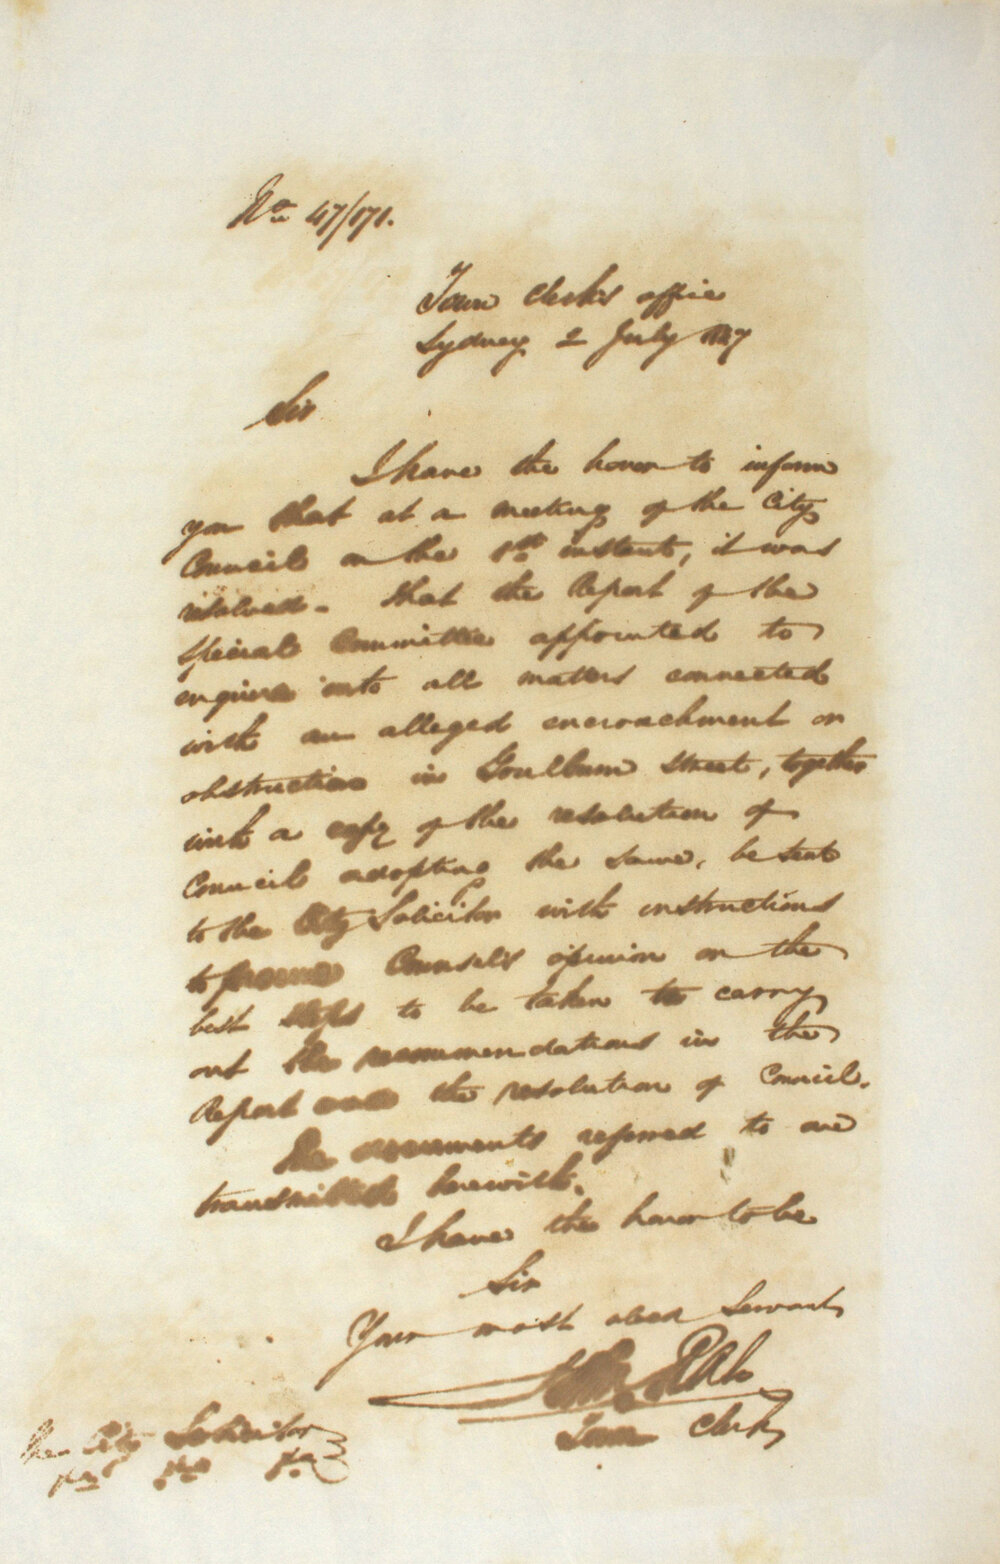 No 47/171.
Town Clerk's office
Sydney 2 July 1847
Sir
I have the honor to inform
you that at a meeting of the City
Council on the 1st instant, it was
resolved. that the Report of the
Special Committee appointed to
enquire into all matters connected
with an alleged encroachment or
obstruction in Goulburn Street, together
with a copy of the resolution of
Council adopting the same, be sent
to the City Solicitor with instructions
to Counsel's opinion on the
best steps to be taken to carry
out the recommendations in the
Report and the resolution of Council.
The documents referred to are
transmitted herewith.
I have the honor to be
Sir
Your most obed Servant
Town Clerk
The City Solicitor